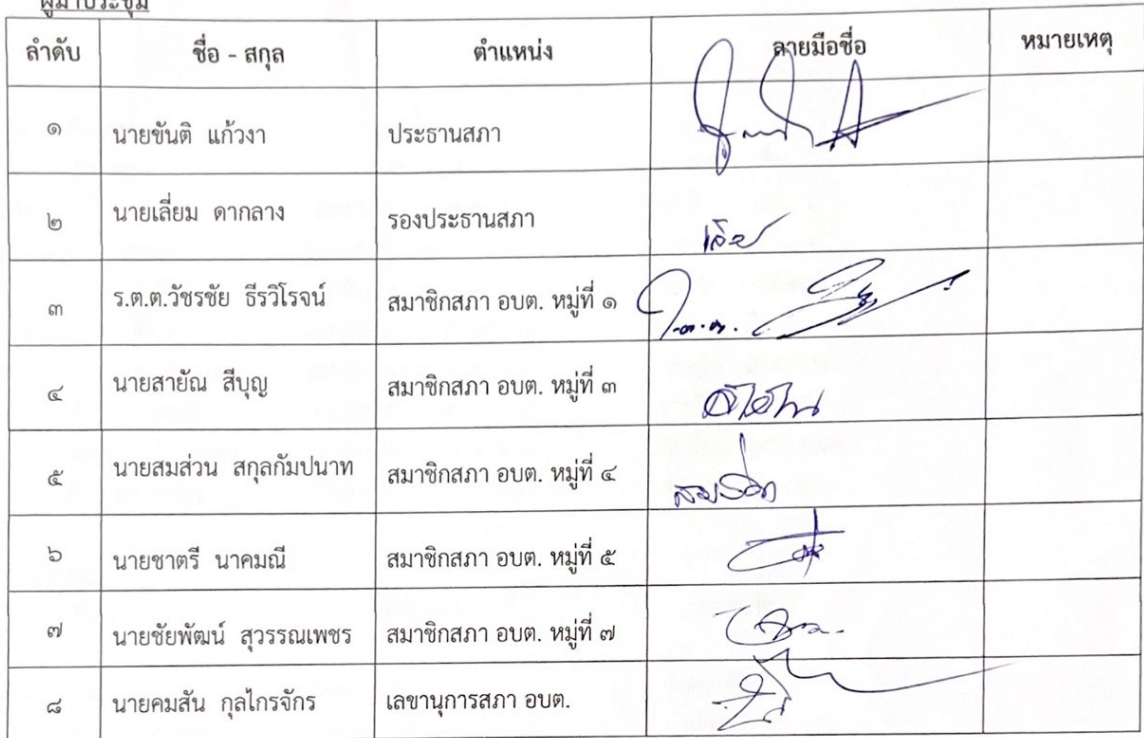 ผู้มาประชุม
ลำดับ ชื่อ - สกุล ตำแหน่ง ลายมือชื่อ หมายเหตุ
๑ นายขันติ แก้วงา ประธานสภา
๒ นายเลี่ยม ดากลาง รองประธานสภา
๓ ร.ต.ต.วัชรชัย ธีรวิโรจน์ สมาชิกสภา อบต. หมู่ที่ ๑
๔ นายสายัณ สีบุญ สมาชิกสภา อบต. หมู่ที่ ๓
๕ นายสมส่วน สกุลกัมปนาท สมาชิกสภา อบต. หมู่ที่ ๔
๖ นายชาตรี นาคมณี สมาชิกสภา อบต. หมู่ที่ ๕
๗ นายชัยพัฒน์ สุวรรณเพชร สมาชิกสภา อบต. หมู่ที่ ๗
๘ นายคมสัน กุลไกรจักร เลขานุการสภา อบต.